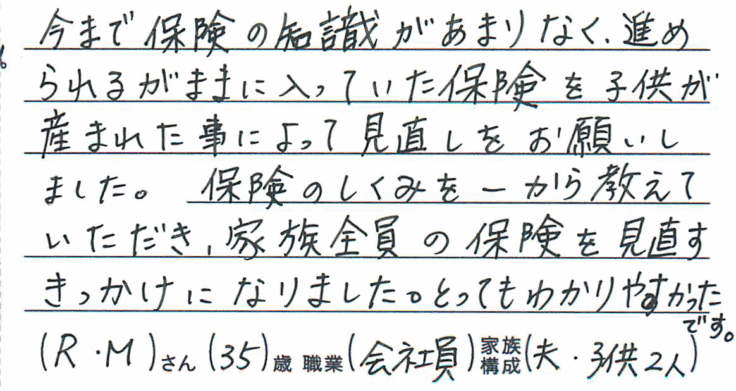 今まで保険の知識があまりなく、進め
られるがままに入っていた保険を子供が
産まれた事によって見直しをお願いし
ました。 保険のしくみを一から教えて
いただき、家族全員の保険を見直す
きっかけになりました。とってもわかりやすかった
です。
(R・M)さん(35)歳 職業(会社員)家族構成(夫・子供2人)